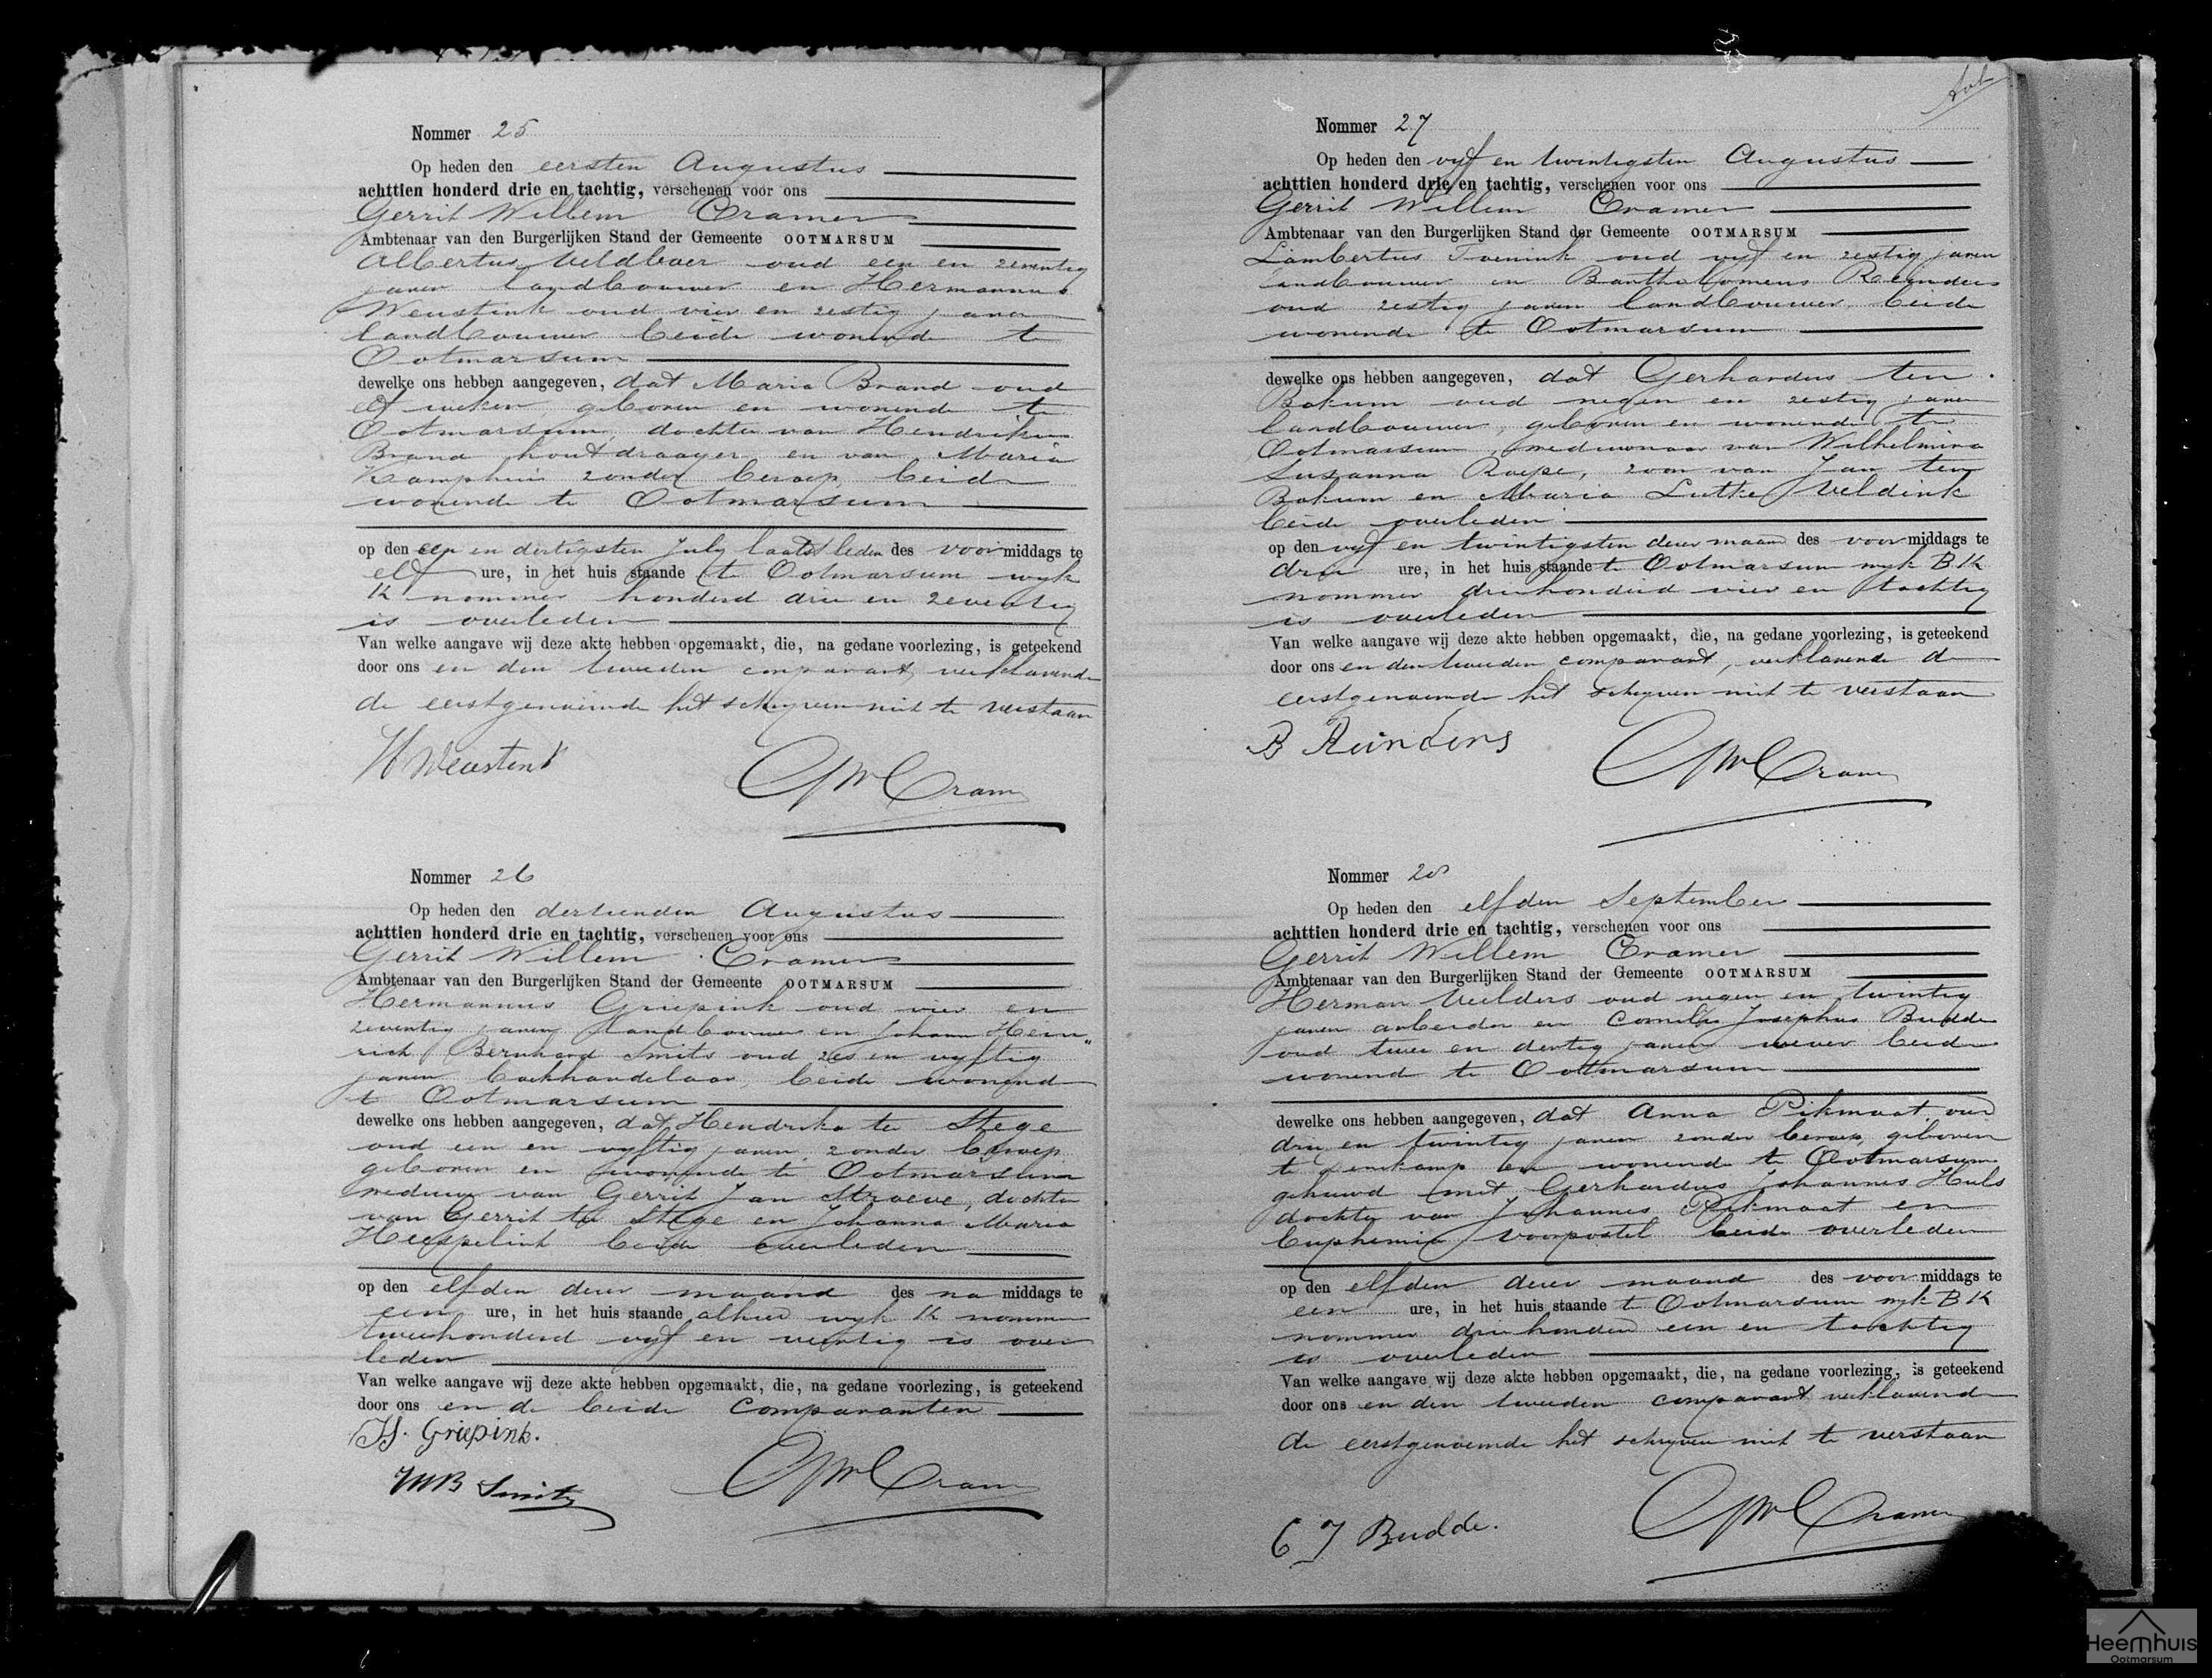 Nommer 25
Op heden den eersten Augustus
achttien honderd drie en tachtig, verschenen voor ons
Gerrit Willem Cramer
Ambtenaar van den Burgerlijken Stand der Gemeente OOTMARSUM
Albertus Veldboer oud een en zeventig
jaren landbouwer en Hermannus
Weustink oud vier en zestig jaren
landbouwer beide wonende te
Ootmarsum
dewelke ons hebben aangegeven, dat Maria Brand oud
elf weken, geboren en wonende te
Ootmarsum, dochter van Hendrikus
Brand houtdraayer en van Maria
Kamphuis zonder beroep, beide
wonende te Ootmarsum
op den een en dertigsten July laatstleden des voormiddags te
elf ure, in het huis staande te Ootmarsum wyk
K nommer honderd drie en zeventig
is overleden
Van welke aangave wij deze akte hebben opgemaakt, die, na gedane voorlezing, is geteekend
door ons en den tweeden comparant, verklarende
de eerstgenoemde het schryven niet te verstaan
H Weustink
GW Cramer
Nommer 26
Op heden den dertienden Augustus
achttien honderd drie en tachtig, verschenen voor ons
Gerrit Willem Cramer
Ambtenaar van den Burgerlijken Stand der Gemeente OOTMARSUM
Hermannus Griepink oud vier en
zeventig jaren landbouwer en Johann Hein"
rich Bernhard Smits oud zes en vyftig
jaren boekhandelaar, beide wonend
te Ootmarsum
dewelke ons hebben aangegeven, dat Hendrika te Stege
oud een en vyftig jaren, zonder beroep
geboren en wonende te Ootmarsum
weduwe van Gerrit Jan Stroeve, dochter
van Gerrit te Stege en Johanna Maria
beide overleden
op den elfden dezer maand des namiddags te
een ure, in het huis staande alhier wyk K nommer
tweehonderd vyf en veertig is over
leden
Van welke aangave wij deze akte hebben opgemaakt, die, na gedane voorlezing, is geteekend
door ons en de beide Comparanten
H. Griepink.
Smits
GW Cramer
Nommer 27
Op heden den vyf en twintigsten Augustus
achttien honderd drie en tachtig, verschenen voor ons
Gerrit Willem Cramer
Ambtenaar van den Burgerlijken Stand der Gemeente OOTMARSUM
Lambertus oud vyf en zestig jaren
landbouwer en Bartholomeus Reinders
oud zestig jaren landbouwer, beide
wonende te Ootmarsum
dewelke ons hebben aangegeven, dat Gerhardus ten
Bokum oud negen en zestig jaren
landbouwer, geboren en wonende te
Ootmarsum, weduwnaar van Wilhelmina
Suzanna Roepe, zoon van Jan ten
Bokum en Maria Lutke Veldink
beide overleden
op den vyf en twintigsten dezer maand des voormiddags te
drie ure, in het huis staande te Ootmarsum wyk B K
nommer driehonderd vier en tachtig
is overleden
Van welke aangave wij deze akte hebben opgemaakt, die, na gedane voorlezing, is geteekend
door ons en den tweeden comparant, verklarende de
eerstgenoemde het schryven niet te verstaan
B Reinders
GW Cramer
Nommer 28
Op heden den elfden September
achttien honderd drie en tachtig, verschenen voor ons
Gerrit Willem Cramer
Ambtenaar van den Burgerlijken Stand der Gemeente OOTMARSUM
Herman Velders oud negen en twintig
jaren arbeider en Cornelis Josephus Budde
oud twee en dertig jaren wever beide
wonend te Ootmarsum
dewelke ons hebben aangegeven, dat Anna Pikmaat, oud
drie en twintig jaren zonder beroep, geboren
te Denekamp en wonende te Ootmarsum
gehuwd met Gerhardus Johannes Huls
dochter van Johannes Pikmaat en
Euphemia Voorpostel beide overleden
op den elfden dezer maand des voormiddags te
een ure, in het huis staande te Ootmarsum wyk B K
nommer driehonderd een en tachtig
is overleden
Van welke aangave wij deze akte hebben opgemaakt, die, na gedane voorlezing, is geteekend
door ons en den tweeden comparant verklarend
de eerstgenoemde het schryven niet te verstaan
C J Budde.
GW Cramer
Heemhuis
Ootmarsum